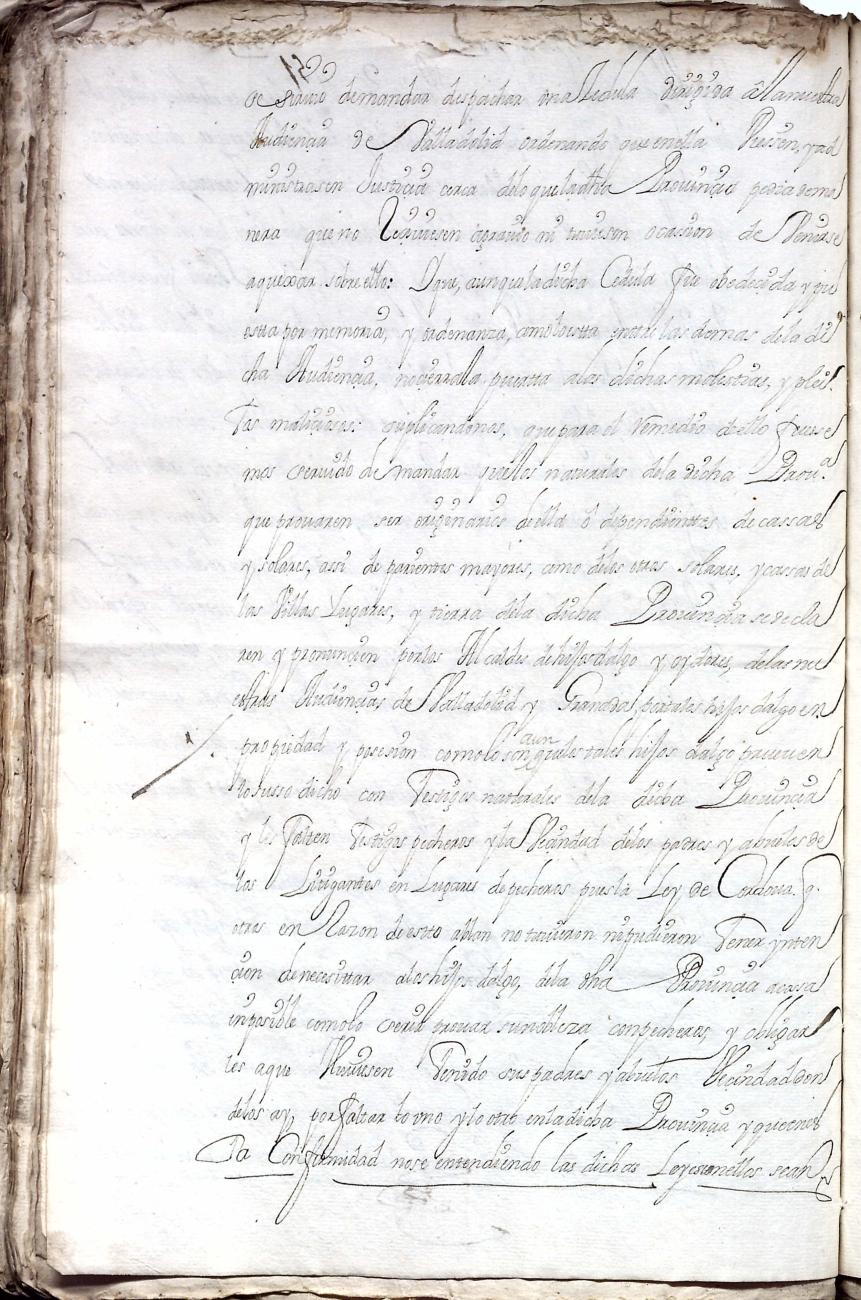 se siruio de mandar despachar una Zedula dirigida â la nuestra
Audiencia de Valladolid ordenando que en ella
ministrasen Justicia cerca de lo que la dha Prouincia pedia de ma
nera que no reciuiesen agrauio ni tuuiesen ocasion de Venirse
a quexar sobre ello: I que, aunque la dicha Cedula fue obedecida, y pu
esta por memoria, y ordenanza, como lo esta entre las demas de la di
cha Audiencia, no cierra la puerta a las dichas molestias, y pleî
tos maliciosos: suplicandonos, que para el remedio de ello fuese
mos seruido de mandar se de los naturales de la dicha Prou.ª
que prouaren ser originarios de ella ô dependientes de cassas
y solares, assi de parientes mayores, como de los otros solares, y cassas de
las Villas Lugares, y tierra de la dicha Prouincia se decla
ren y pronuncien por los Alcaldes de hijos dalgo y oydores, de las nu
estras Audiencias de Valladolid y Granada, por tales hijos dalgo en
propiedad y posesion como lo son aun q los tales hijos dalgo prueuen
lo susso dicho con Testigos naturales de la dicha Prouincia
y les falten testigos pecheros y la Vecindad de los padres y abuelos de
los Litigantes en Lugares de pecheros pues la Ley de Cordoua. q.
otras en Razon de esto ablan no tuuieron ni pudieron Tener ynten
cion de necesittar a los hijos dalgo, de la dha Prouincia a cosa
imposible como lo seria prouar su nobleza con pecheros, y obligar
les a que Huuiesen Tenido sus padres y abuelos Vecindad don
de los ay, por faltar lo vno y lo otro en la dicha Prouincia y que en es
Ta Conformidad no se entendiendo las dichas Leyes con ellos sean